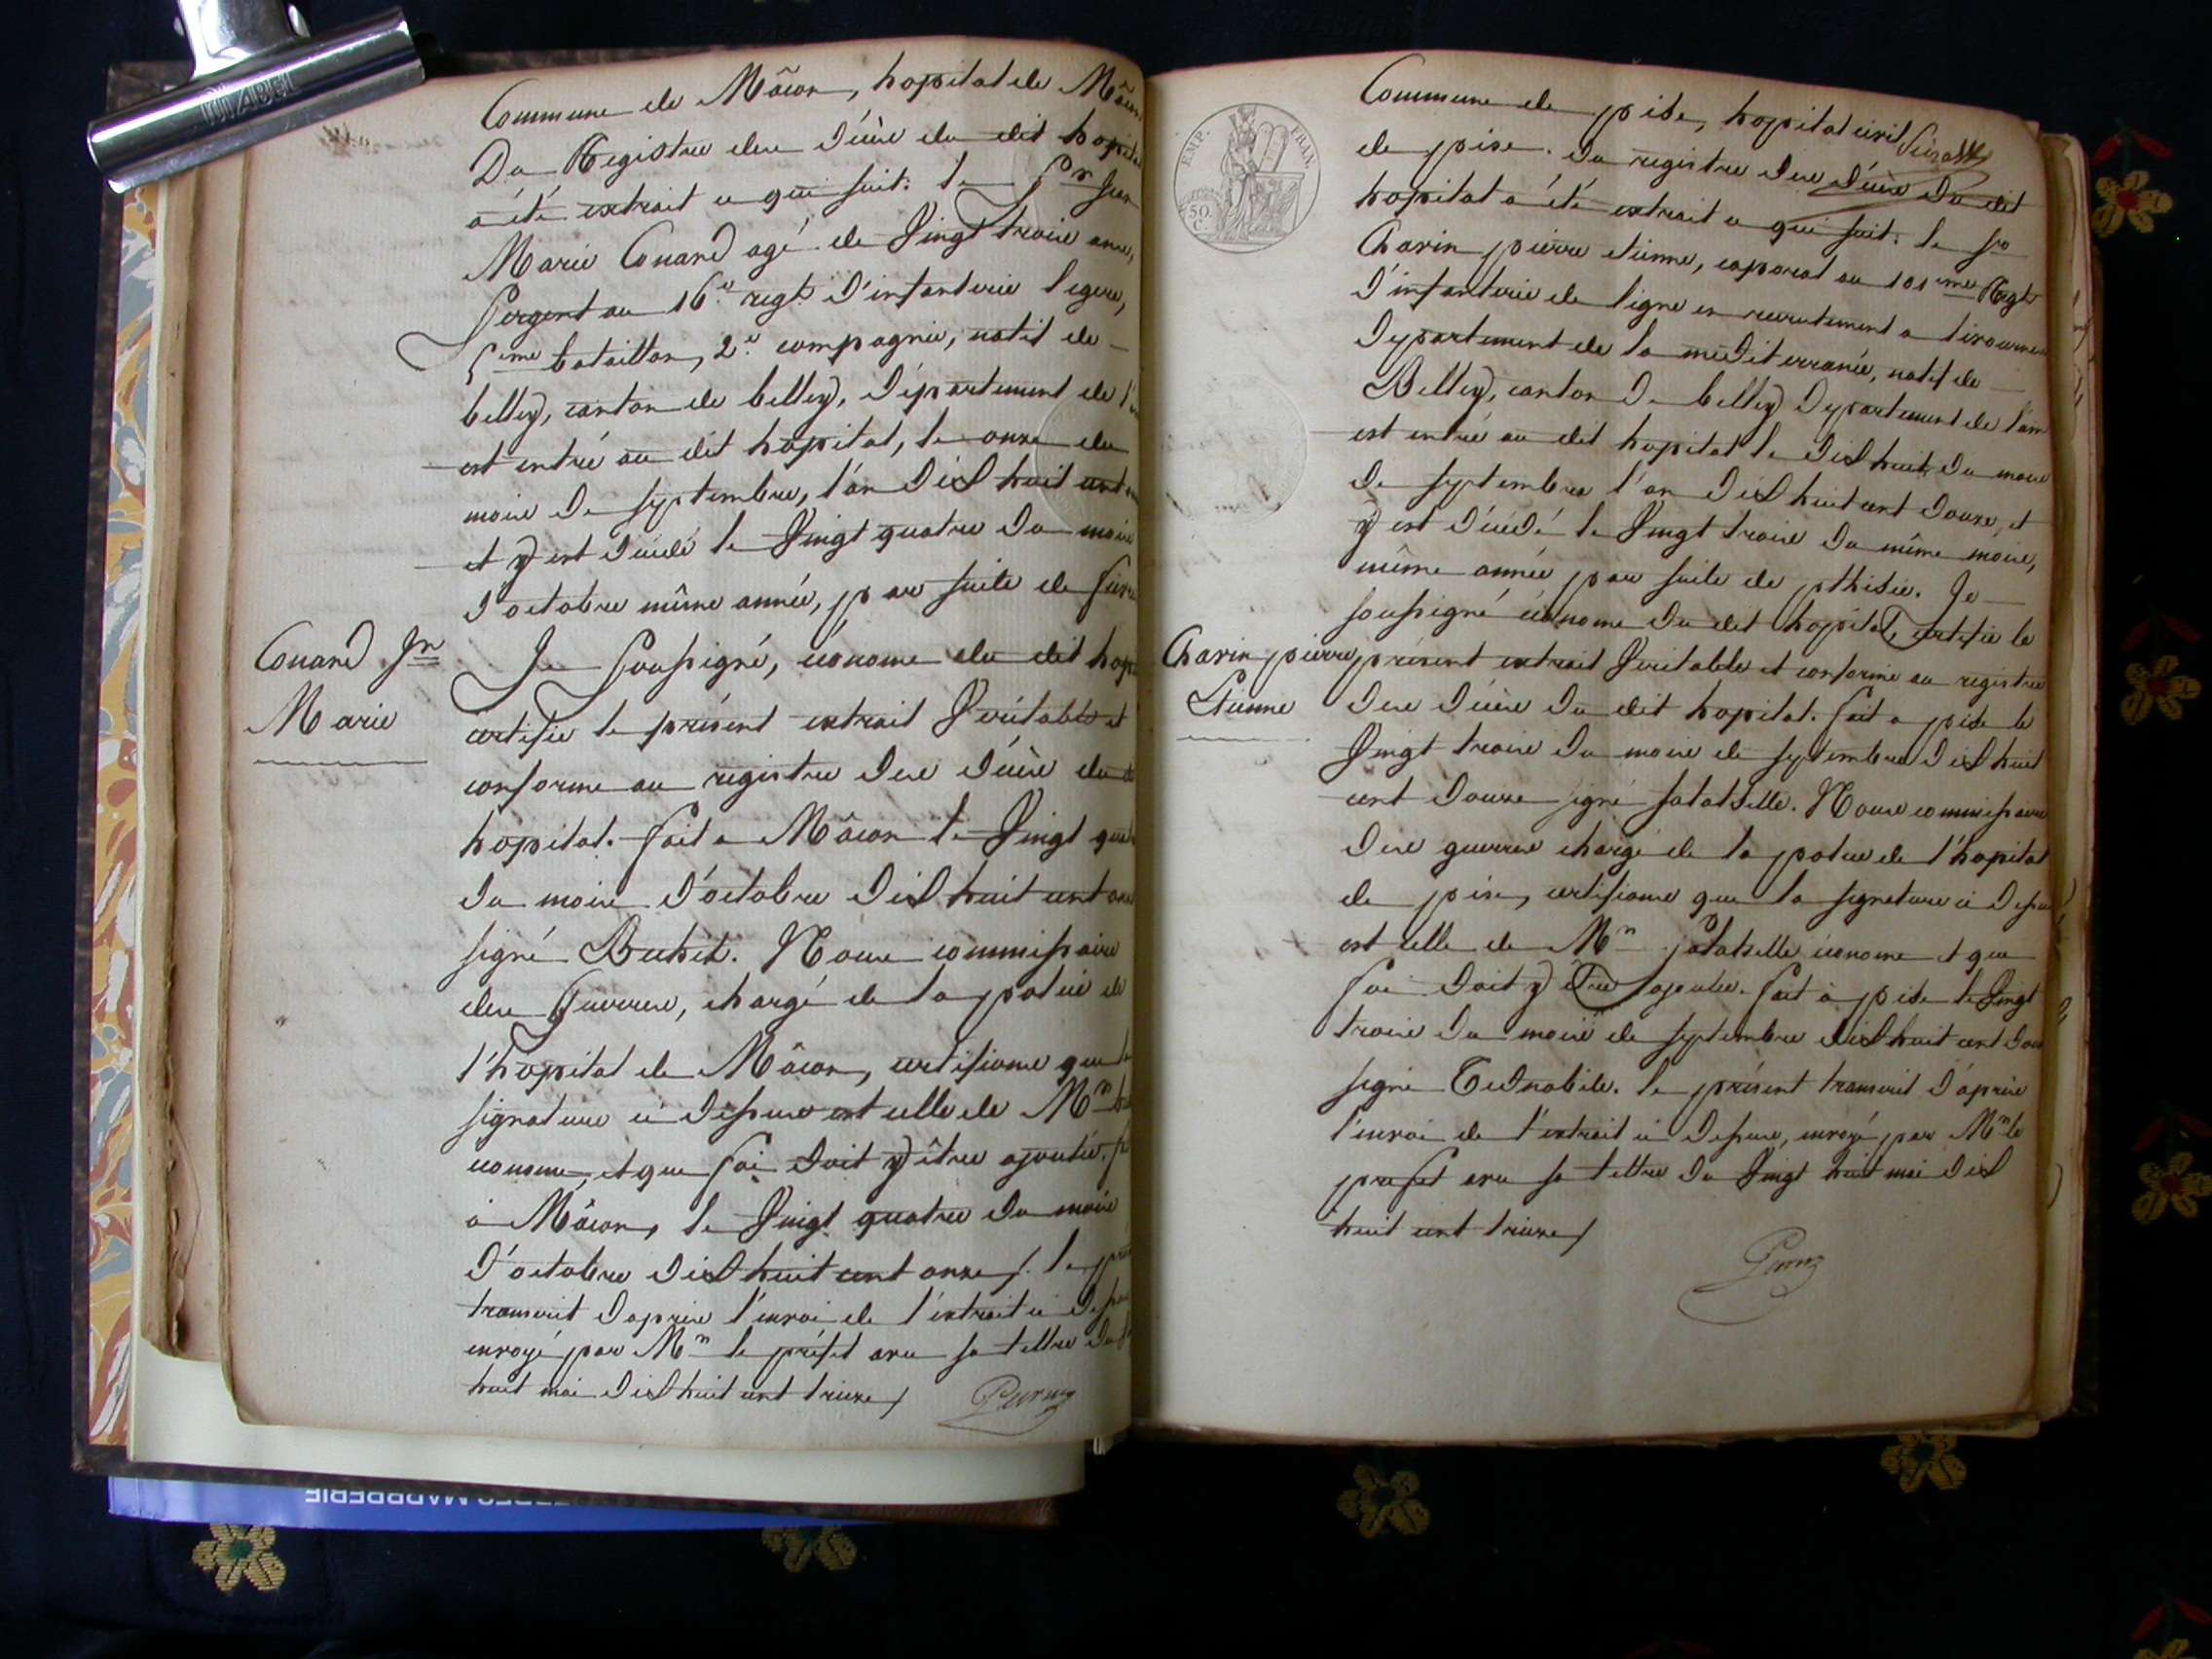 Commune de Mâcon, hopital de Mâcon
Du Registre des décès du dit hopital
a été extrait ce qui suit. le Sr Jean
Marie Conand agé de Vingt trois ans,
Sergent au 16e regt d'infanterie legere,
5eme bataillon, 2e compagnie, natif de
belley, canton de belley, département de l'ain
est entré au dit hopital, le onze du
mois de septembre, l'an dix huit cent onze
et y est décédé le Vingt quatre du mois
d'octobre même année, par suite de fievre
Conand Jn
Marie
Je Soussigné, économe du dit hopital
certifie le présent extrait Véritable et
conforme au registre des décès du dit
hopital. fait a Mâcon le Vingt quatre
du mois d'octobre dix huit cent onze
signé Nous commissaire
des Guerres, chargé de la police de
l'hopital de Mâcon, certifions que la
signature ci dessus est celle de Mr
econome, et que foi doit y être ajoutée. fait
à Mâcon, le Vingt quatre du mois
d'octobre dix huit cent onze /. le présent
transcrit d'après l'envoi de l'extrait ci dessus
envoyé par Mr le préfet avec sa lettre du Vingt
huit mai dix huit cent treize /
EMP. FRAN.
50 C.
Commune de pise, hopital civil
de pise. du registre des décès du dit
hopital a été extrait ce qui suit. le sr
Charin pierre etienne, caporal au 101eme Regt
d'infanterie de ligne en recrutement a livourne
département de la mediterranée, natif de
Belley, canton De belley Département de l'ain
est entré au dit hopital le dix huit du mois
de septembre l'an dix huit cent douze, et
y est décédé le Vingt trois du même mois,
même année par suite de pthisie. Je
soussigné économe du dit hopital, certifie le
Charin pierre
Etienne
présent extrait Veritable et conforme au registre
des décès du dit hopital. fait a pise le
Vingt trois du mois de septembre dix huit
cent douze signé Nous commissaire
des guerres chargé de la police de l'hopital
de pise, certifions que la signature ci dessus
est celle de Mr économe et que
foi doit y être ajoutée. fait à pise le Vingt
trois du mois de septembre dix huit cent douze
signé le présent transcrit d'après
l'envoi de l'extrait ci dessus, envoyé par Mr le
prefet avec sa lettre du Vingt huit mai dix
huit cent treize /